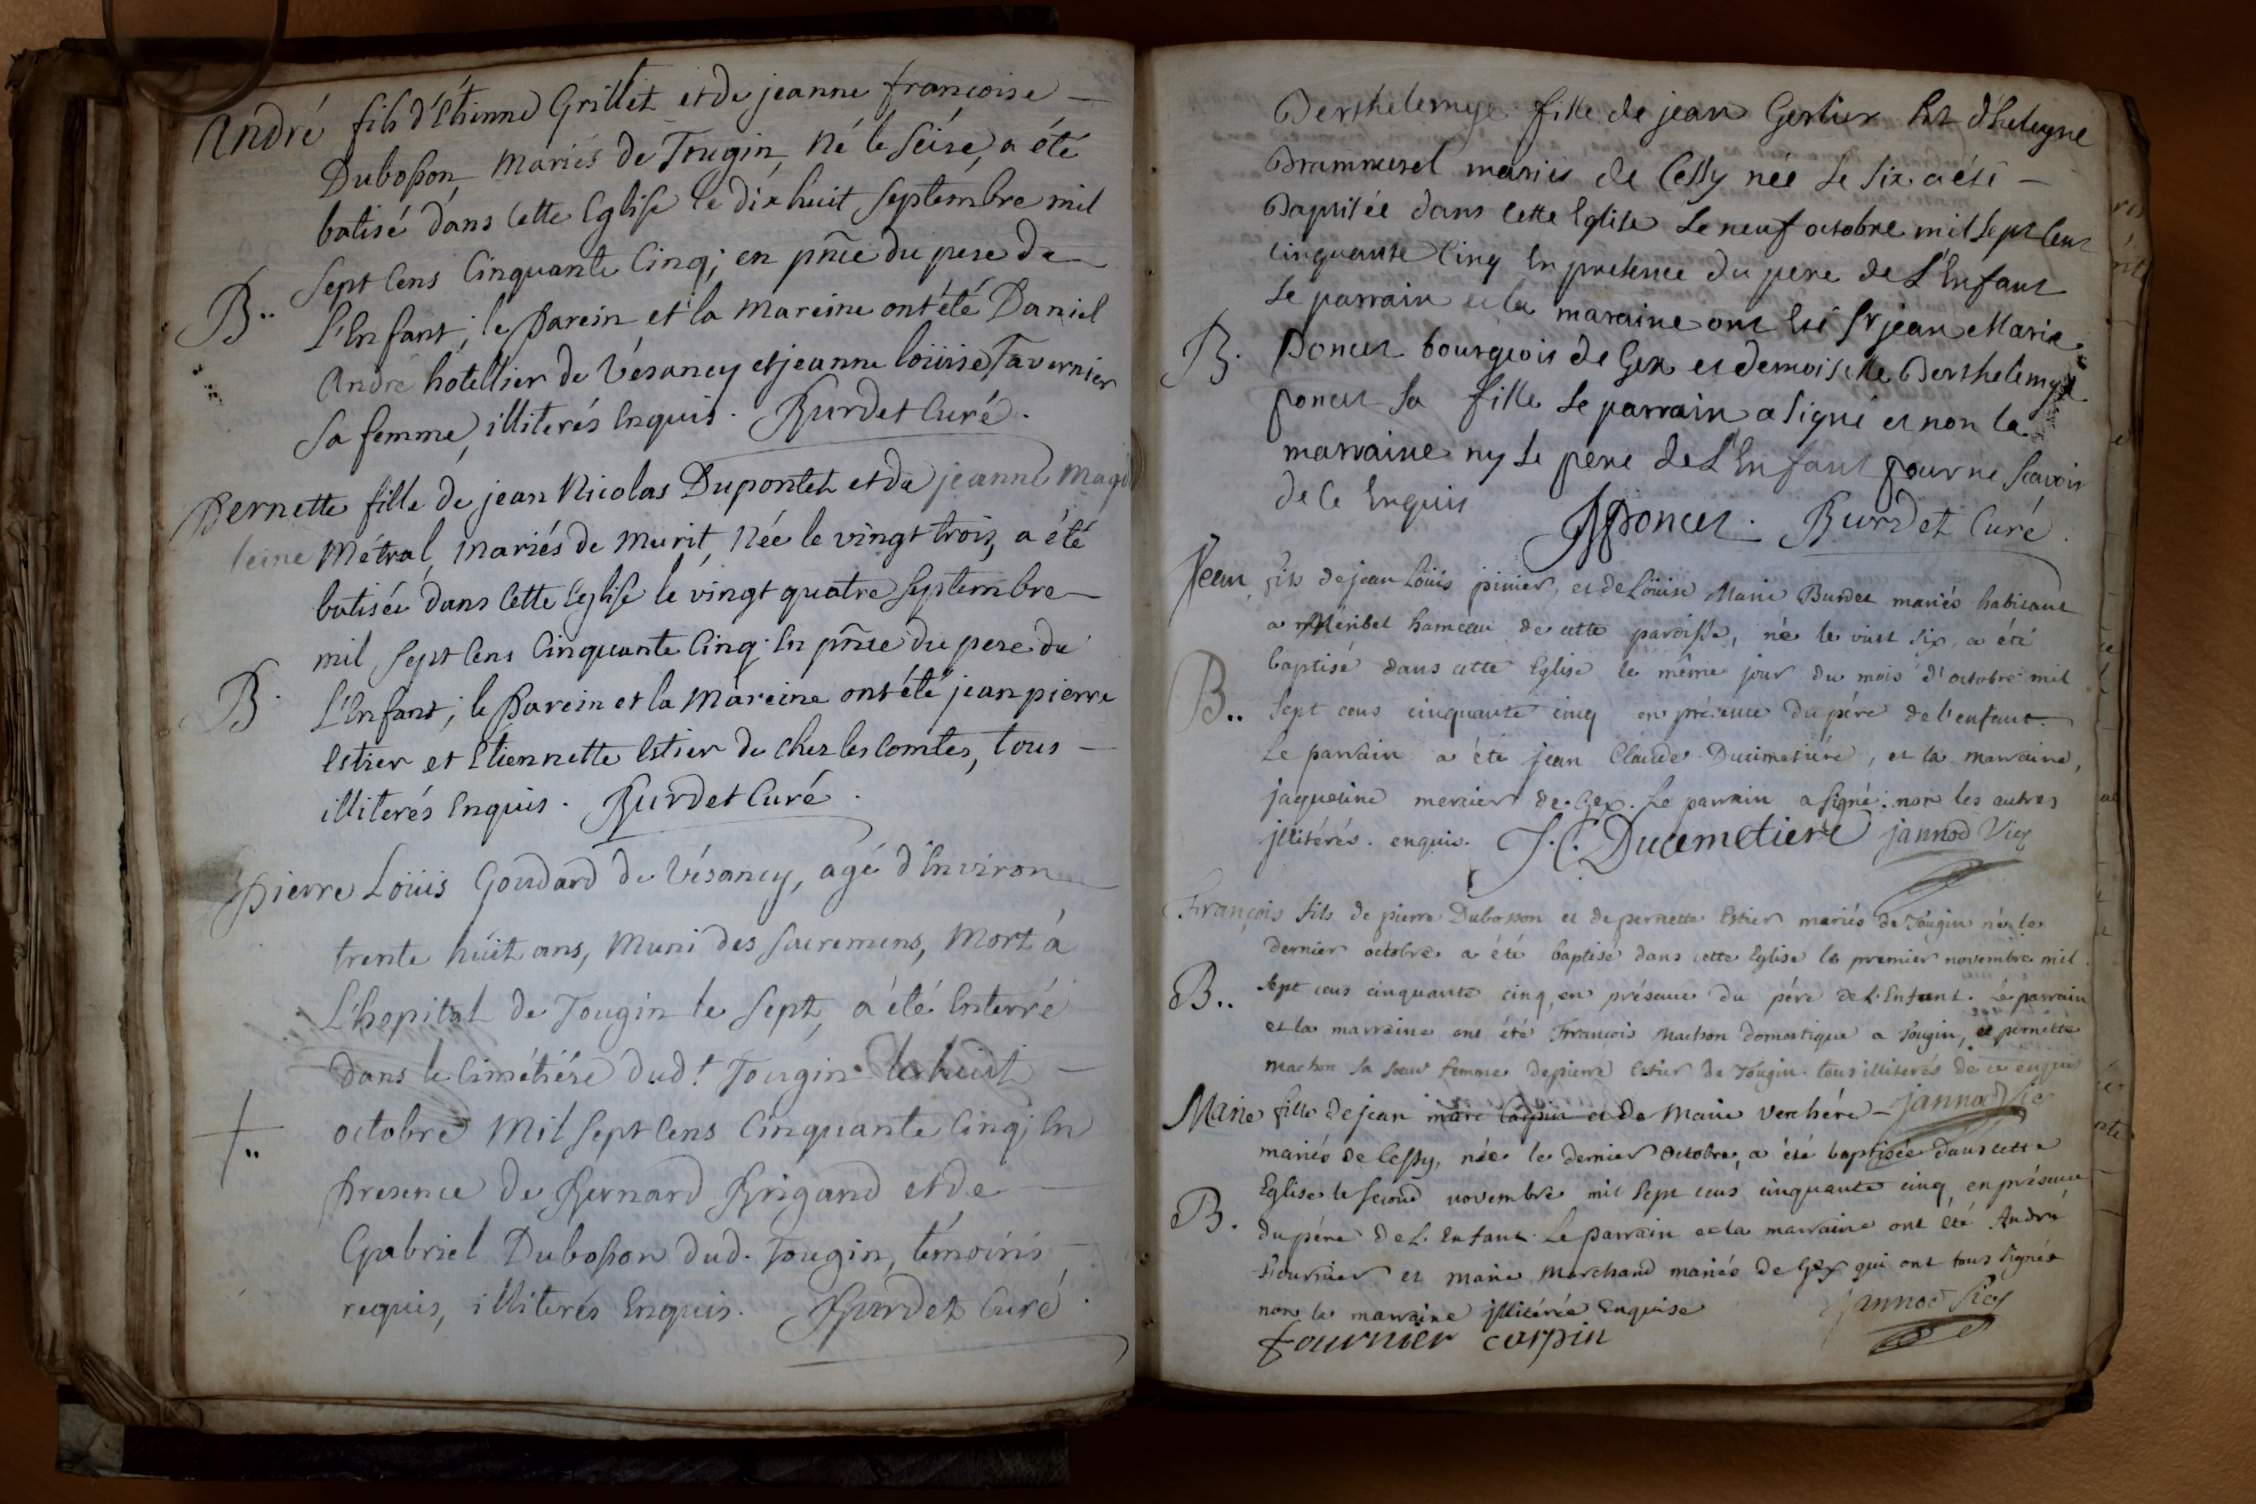 André fils d'Etienne Grillet et de jeanne françoise
Dubosson, mariés de Tougin, né le seise, a été
batisé dans cette Eglise le dix huit septembre mil
sept cens cinquante cinq; en pnce du pere de
B.. l'Enfant; le parein et la mareine ont été Daniel
André hotellier de Vésancy et jeanne loüise Tavernier
sa femme, illiterés Enquis. Burdet Curé.
Pernette fille de jean Nicolas Dupontet et de jeanne Magd
leine Métral, mariés de Murit, Née le vingt trois, a été
batisée dans cette Eglise le vingt quatre septembre
mil sept cens cinquante cinq. En pnce du pere de
B. l'Enfant; le parein et la mareine ont été jean pierre
Estier et Etiennette Estier de chez les comtes, tous
illiterés Enquis. Burdet Curé.
pierre Loüis Goudard de Vésancy, agé d'Environ
trente huit ans, muni des sacremens, mort à
L'hopital de Tougin le sept, a été Enterré
dans le Cimétiére dud.t Tougin le huit
octobre mil sept cens cinquante cinq; En
presence de Bernard Brigand et de
Gabriel Dubosson dud. Tougin, témoins
requis, illiterés Enquis. Burdet Curé.
Berthelemye fille de jean Gerlier Et d'heleyne
Brammerel mariés de Cessy née le six a été
Baptisée dans cette Eglise le neuf octobre mil sept cent
cinquante cinq En presence du pere de L'Enfant
le parrain et la maraine ont Eté Sr jean Marie
B. poncet bourgeois de Gex et demoiselle Berthelemye
poncet sa fille le parrain a signé et non la
marraine ny le pere de L'Enfant pour ne scavoir
de ce Enquis Poncet. Burdet Curé.
Jean, fils de jean Loüis pinier, et de Loüise Marie Burdet mariés habitant
a Méribel hameau de cette paroisse, né le vint six, a été
baptisé dans cette Eglise le même jour du mois d'octobre mil
B.. sept cens cinquante cinq en présence du pére de l'enfant.
Le parrain a été jean Claude Ducimetiére, et la marraine,
jaqueline mercier de Gex. Le parrain a signé; non les autres
illitérés. enquis. J. C. Ducemetiere jannod Vic
François fils de pierre Dubosson et de pernette Estier mariés de Tougin né le
dernier octobre a été baptisé dans cette Eglise le premier novembre mil
B.. sept cens cinquante cinq, en présence du pére de L'Enfant. Le parrain
et la marraine ont été François Machon domestique a Tougin, et pernette
machon sa soeur femme de pierre Estier de Tougin. tous illiterés de ce enquis
Marie fille de jean marc Carpin et de Marie Verchére jannod Vic
mariés de Cessy, née le dernier Octobre, a été baptisée dans cette
Eglise le second novembre mil sept cens cinquante cinq, en présence
B. du pére de L'Enfant. Le parrain et la marraine ont été André
Fournier et Marie Marchand mariés de Gex qui ont tous signés
non la marraine illitérée Enquise jannod Vic
fournier carpin